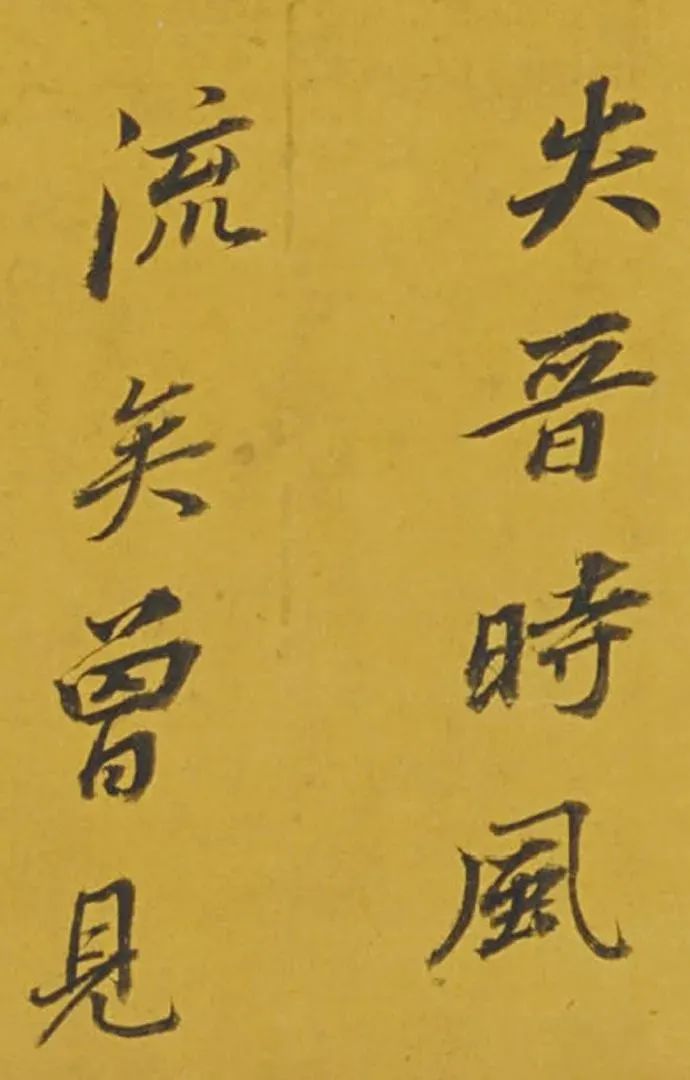 失晉時風
流矣曾見